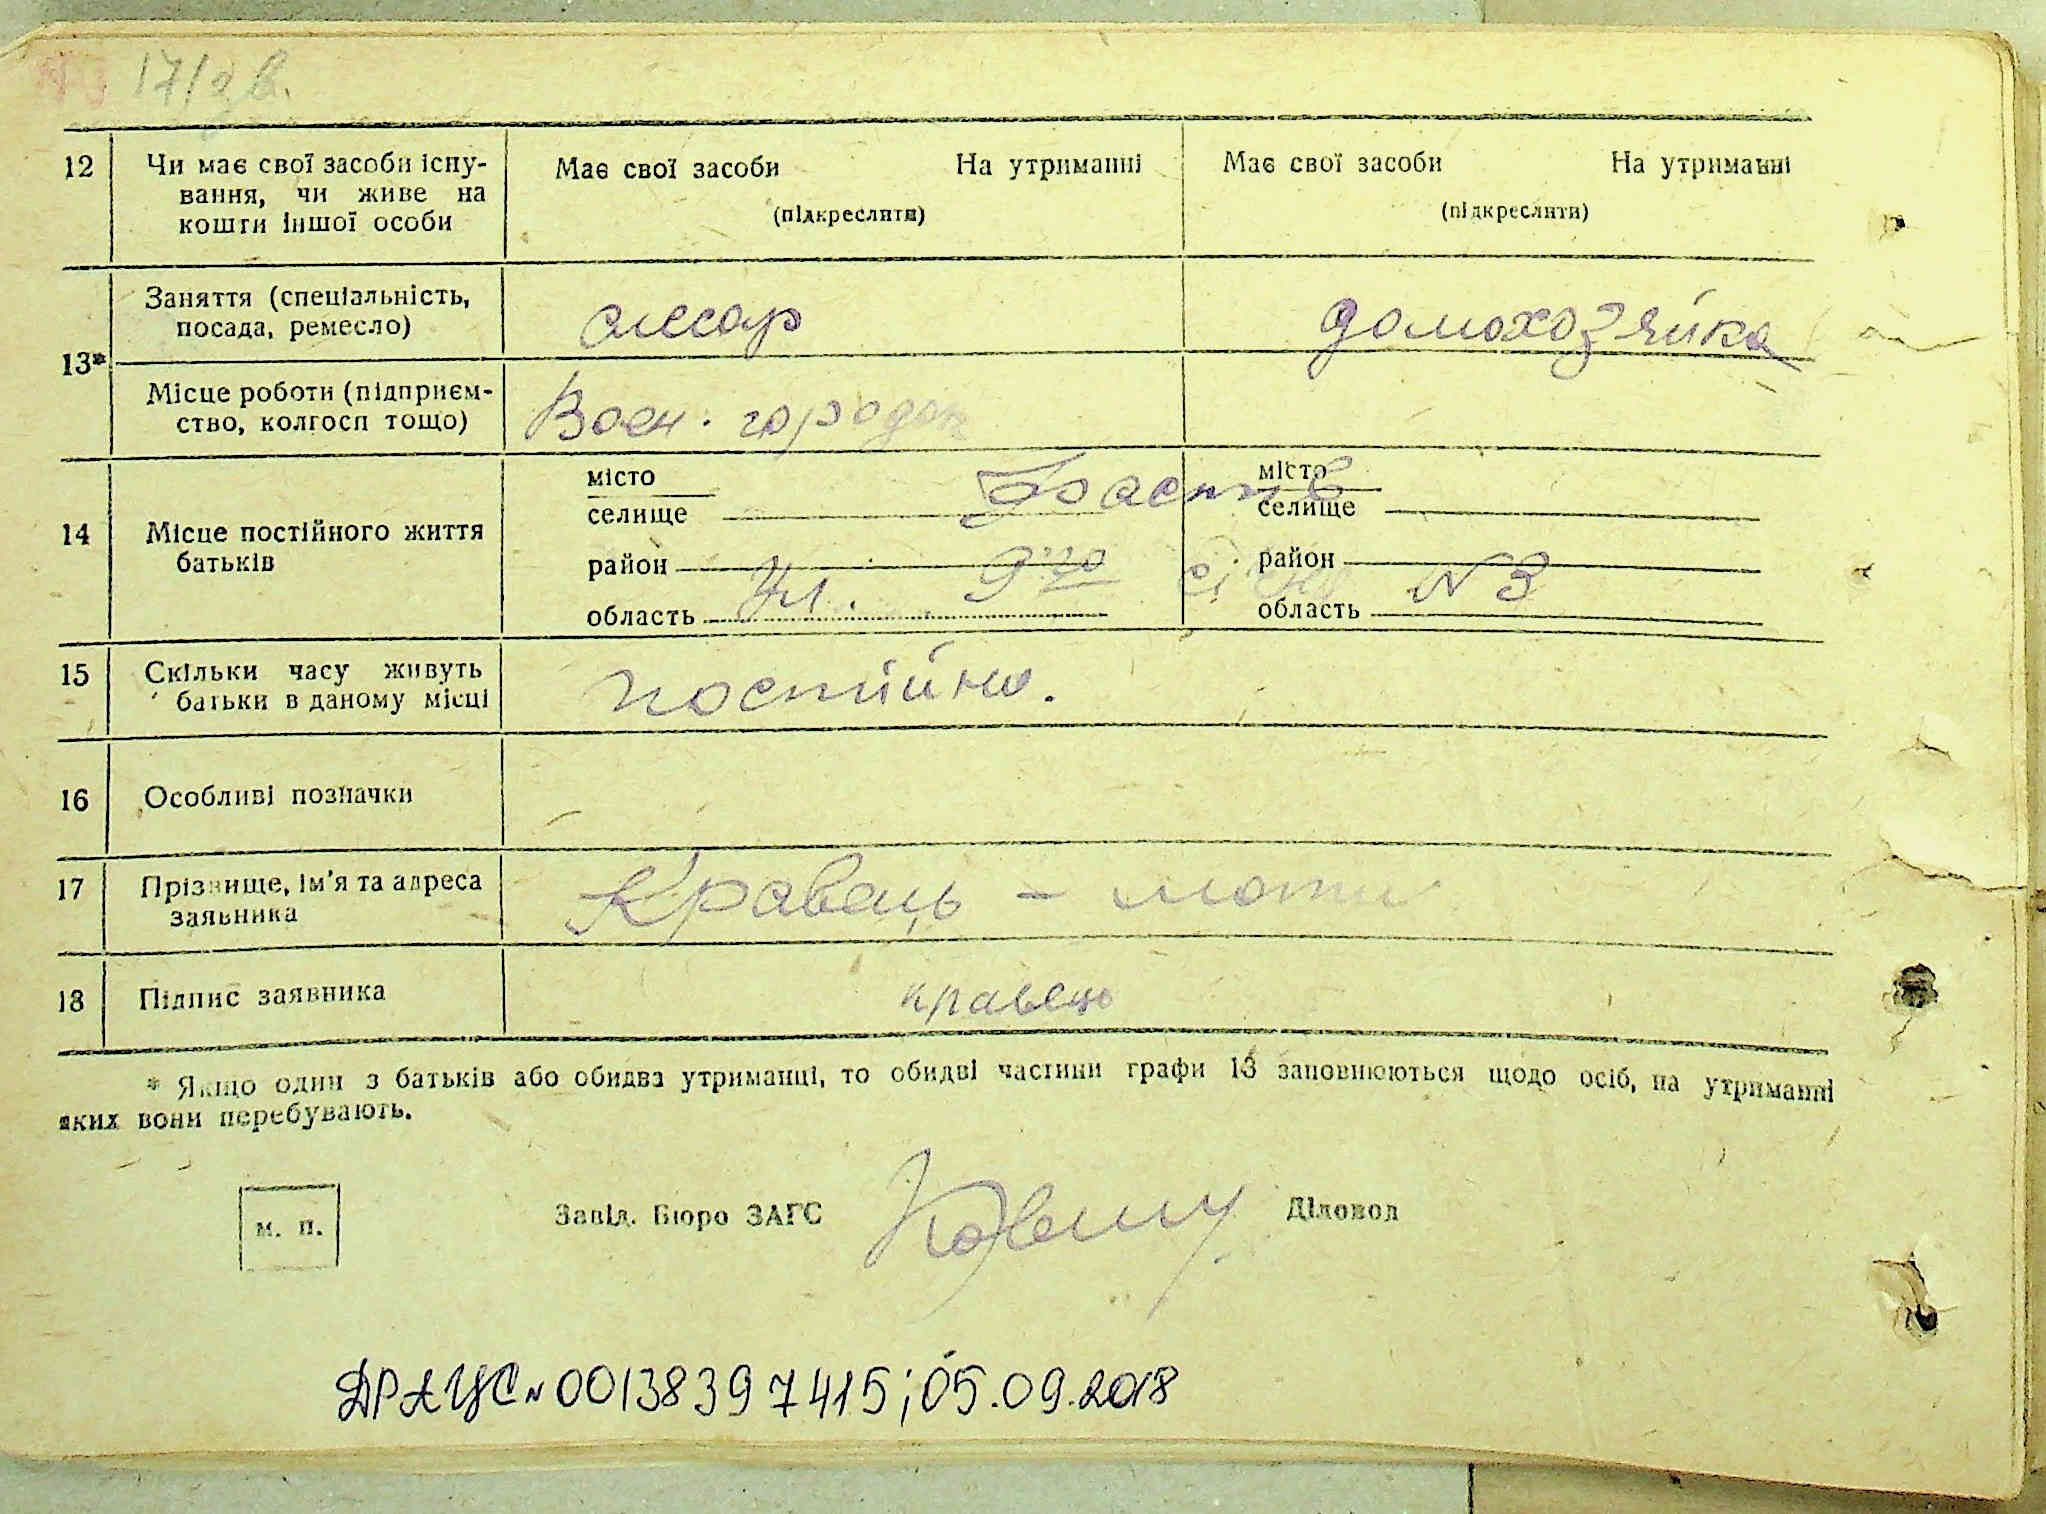 17/зв.
12 Чи має свої засоби існу- Має свої засоби На утриманні Має свої засоби На утриманні
вання, чи живе на
кошти іншої особи (підкреслити) (підкреслити)
13* Заняття (спеціальність, слесар домохозяйка
посада, ремесло)
Місце роботи (підприєм- Воен. городок
ство, колгосп тощо)
14 Місце постійного життя
батьків
місто Фастів місто
селище селище
район район
Ул. 9го січня №3
область область
15 Скільки часу живуть постійно.
батьки в даному місці
16 Особливі позначки
17 Прізвище, ім'я та адреса Кравець - мати
заявника
18 Підпис заявника кравець
* Якщо один з батьків або обидва утриманці, то обидві частини графи 13 заповнюються щодо осіб, на утриманні
яких вони перебувають.
м. п. Завід. Бюро ЗАГС Діловод
ДРАЦС № 00138397415; 05.09.2018